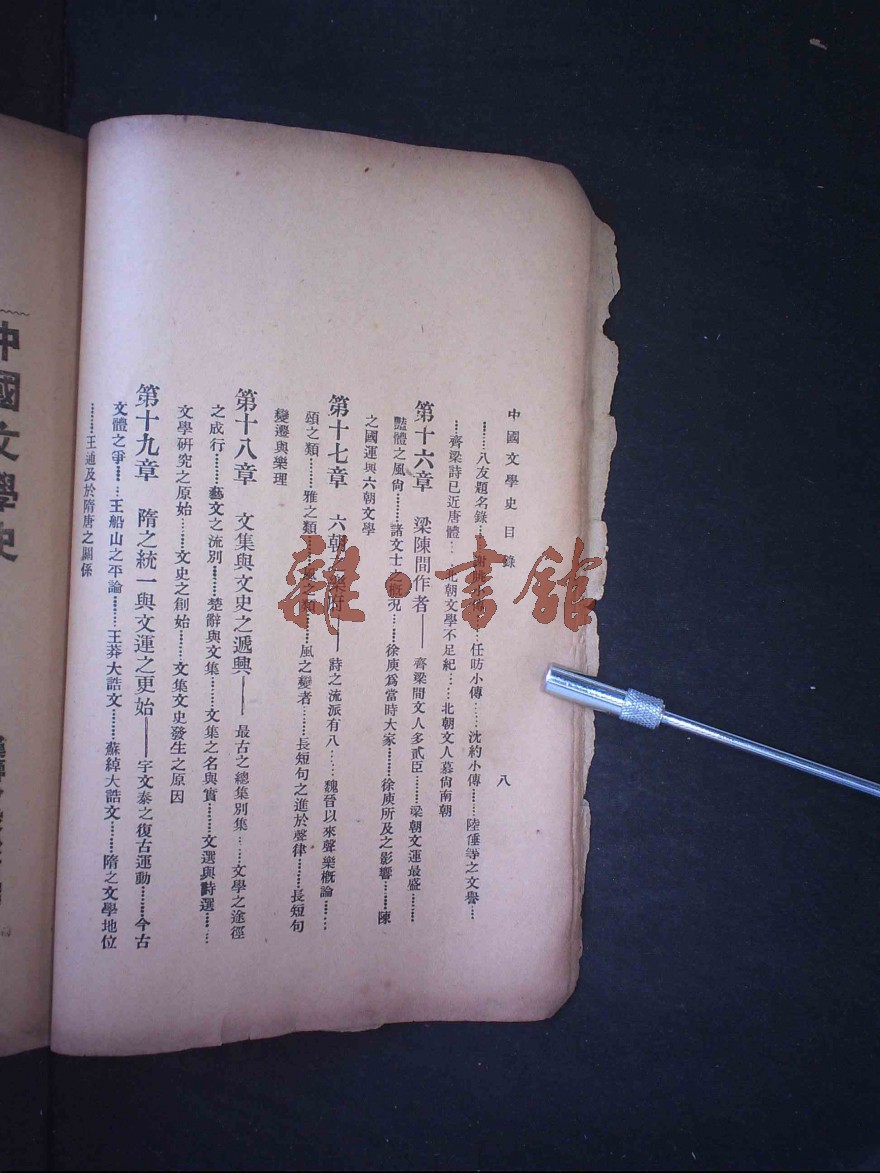 中國文學史目錄
八
………八友題名錄………謝朓小傳………任昉小傳……沈約小傳………陸倕等之文譽…
…齊梁詩已近唐體…北朝文學不足紀……北朝文人慕尙南朝
第十六章 梁陳間作者——齊梁間文人多貳臣………梁朝文運最盛………
豔體之風尙………諸文士之槪況……徐庾爲當時大家………徐庾所及之影響………陳
之國運與六朝文學
第十七章 六朝之樂府——詩之流派有八……魏晉以來聲樂槪論……
頌之類………雅之類………風之類………風之變者………長短句之進於聲律………長短句
變遷與樂理
第十八章 文集與文史之遞興——最古之總集別集……文學之途徑
之成行………藝文之流別………楚辭與文集………文集之名與實………文選與詩選……
文學研究之原始………文史之創始………文集文史發生之原因
第十九章 隋之統一與文運之更始——宇文泰之復古運動………今古
文體之爭………王船山之平論………王莽大誥文………蘇綽大誥文………隋之文學地位
………王通及於隋唐之關係
中國文學史
雜·書館